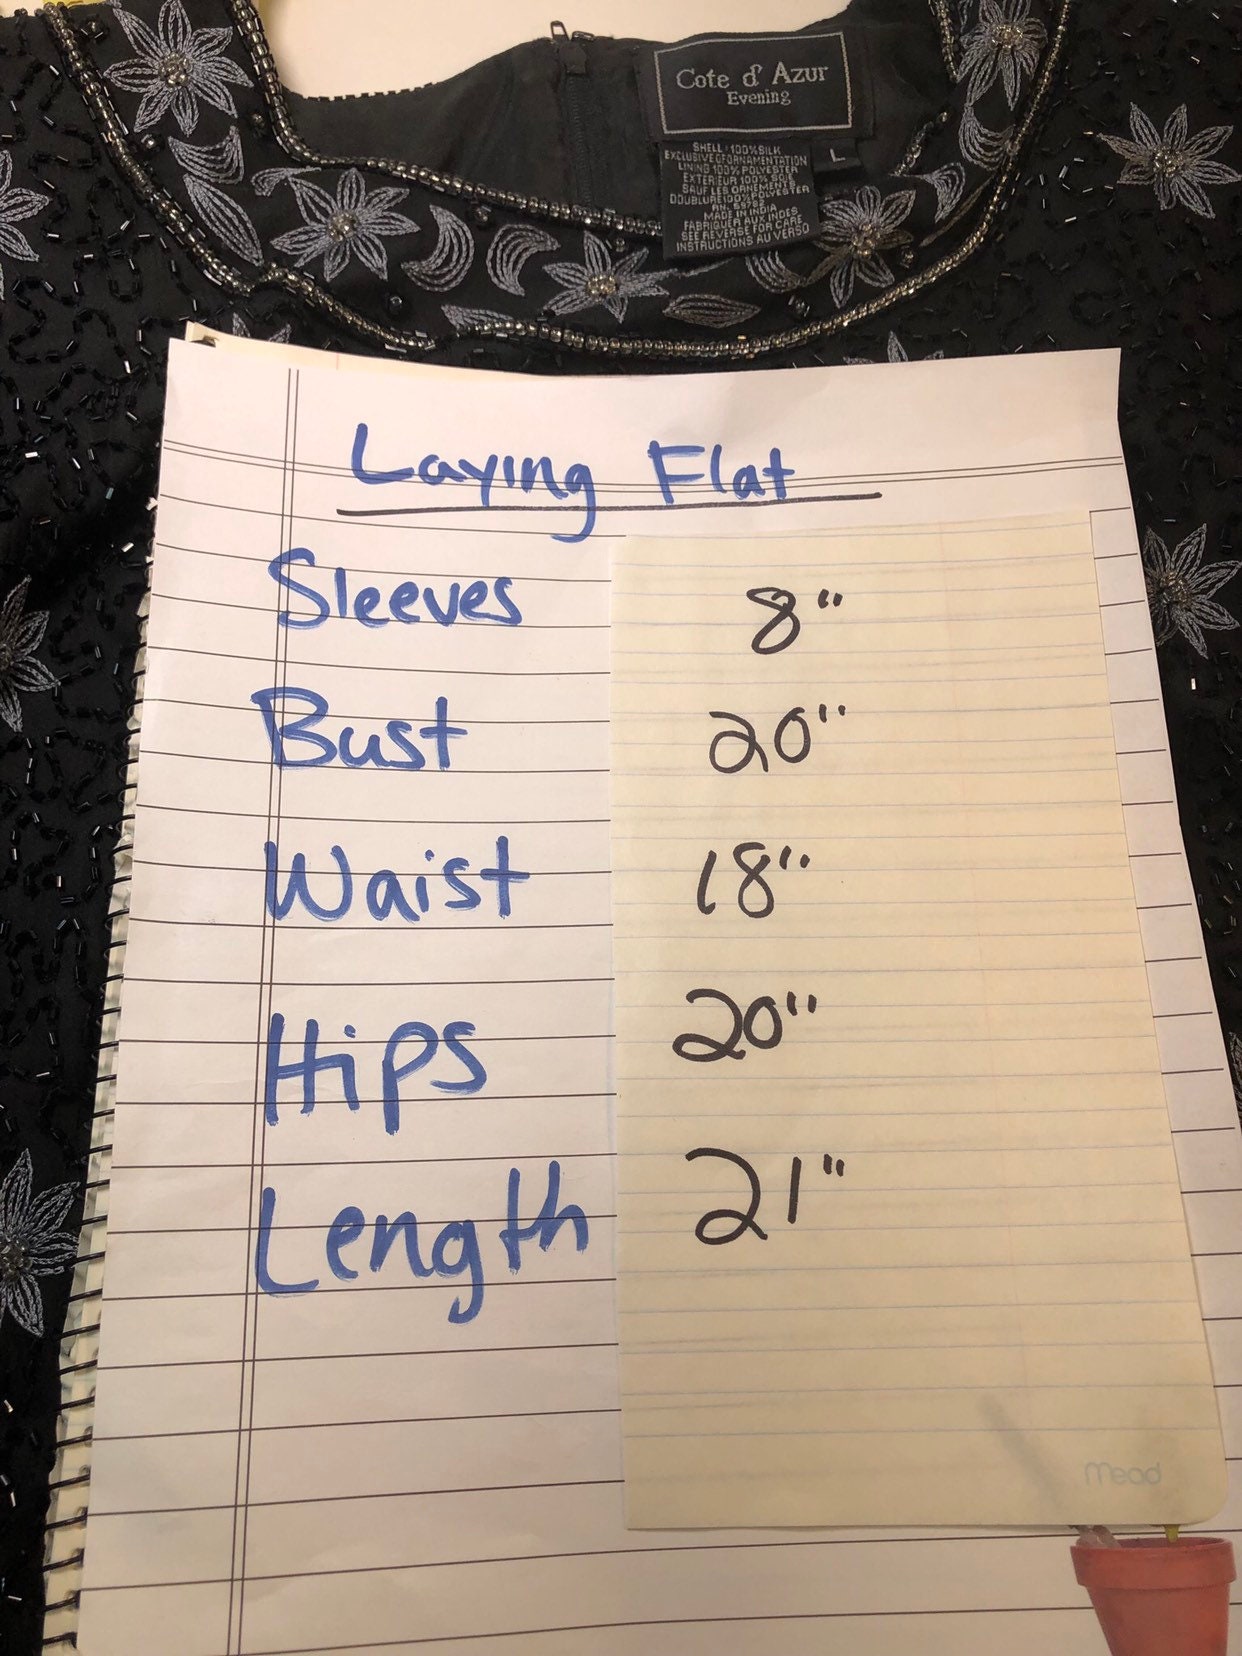 Cote d' Azur
Evening
L
SHELL : 100% SILK
EXCLUSIVE OF ORNAMENTATION
LINING 100% POLYESTER
EXTERIEUR 100% SOIE
SAUF LES ORNEMENTS
DOUBLURE 100% POLYESTER
MADE IN INDIA
FABRIQUE AUX INDES
SEE REVERSE FOR CARE
INSTRUCTIONS AU VERSO
Laying Flat
Sleeves 8"
Bust 20"
Waist 18"
Hips 20"
Length 21"
Mead